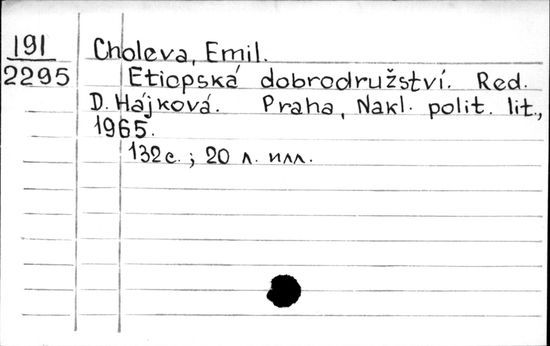 191
2295
Choleva, Emil.
Etiopská dobrodružství. Red.
D. Hájková. Praha, Nakl. polit. lit.,
1965.
132 с. ; 20 л. илл.